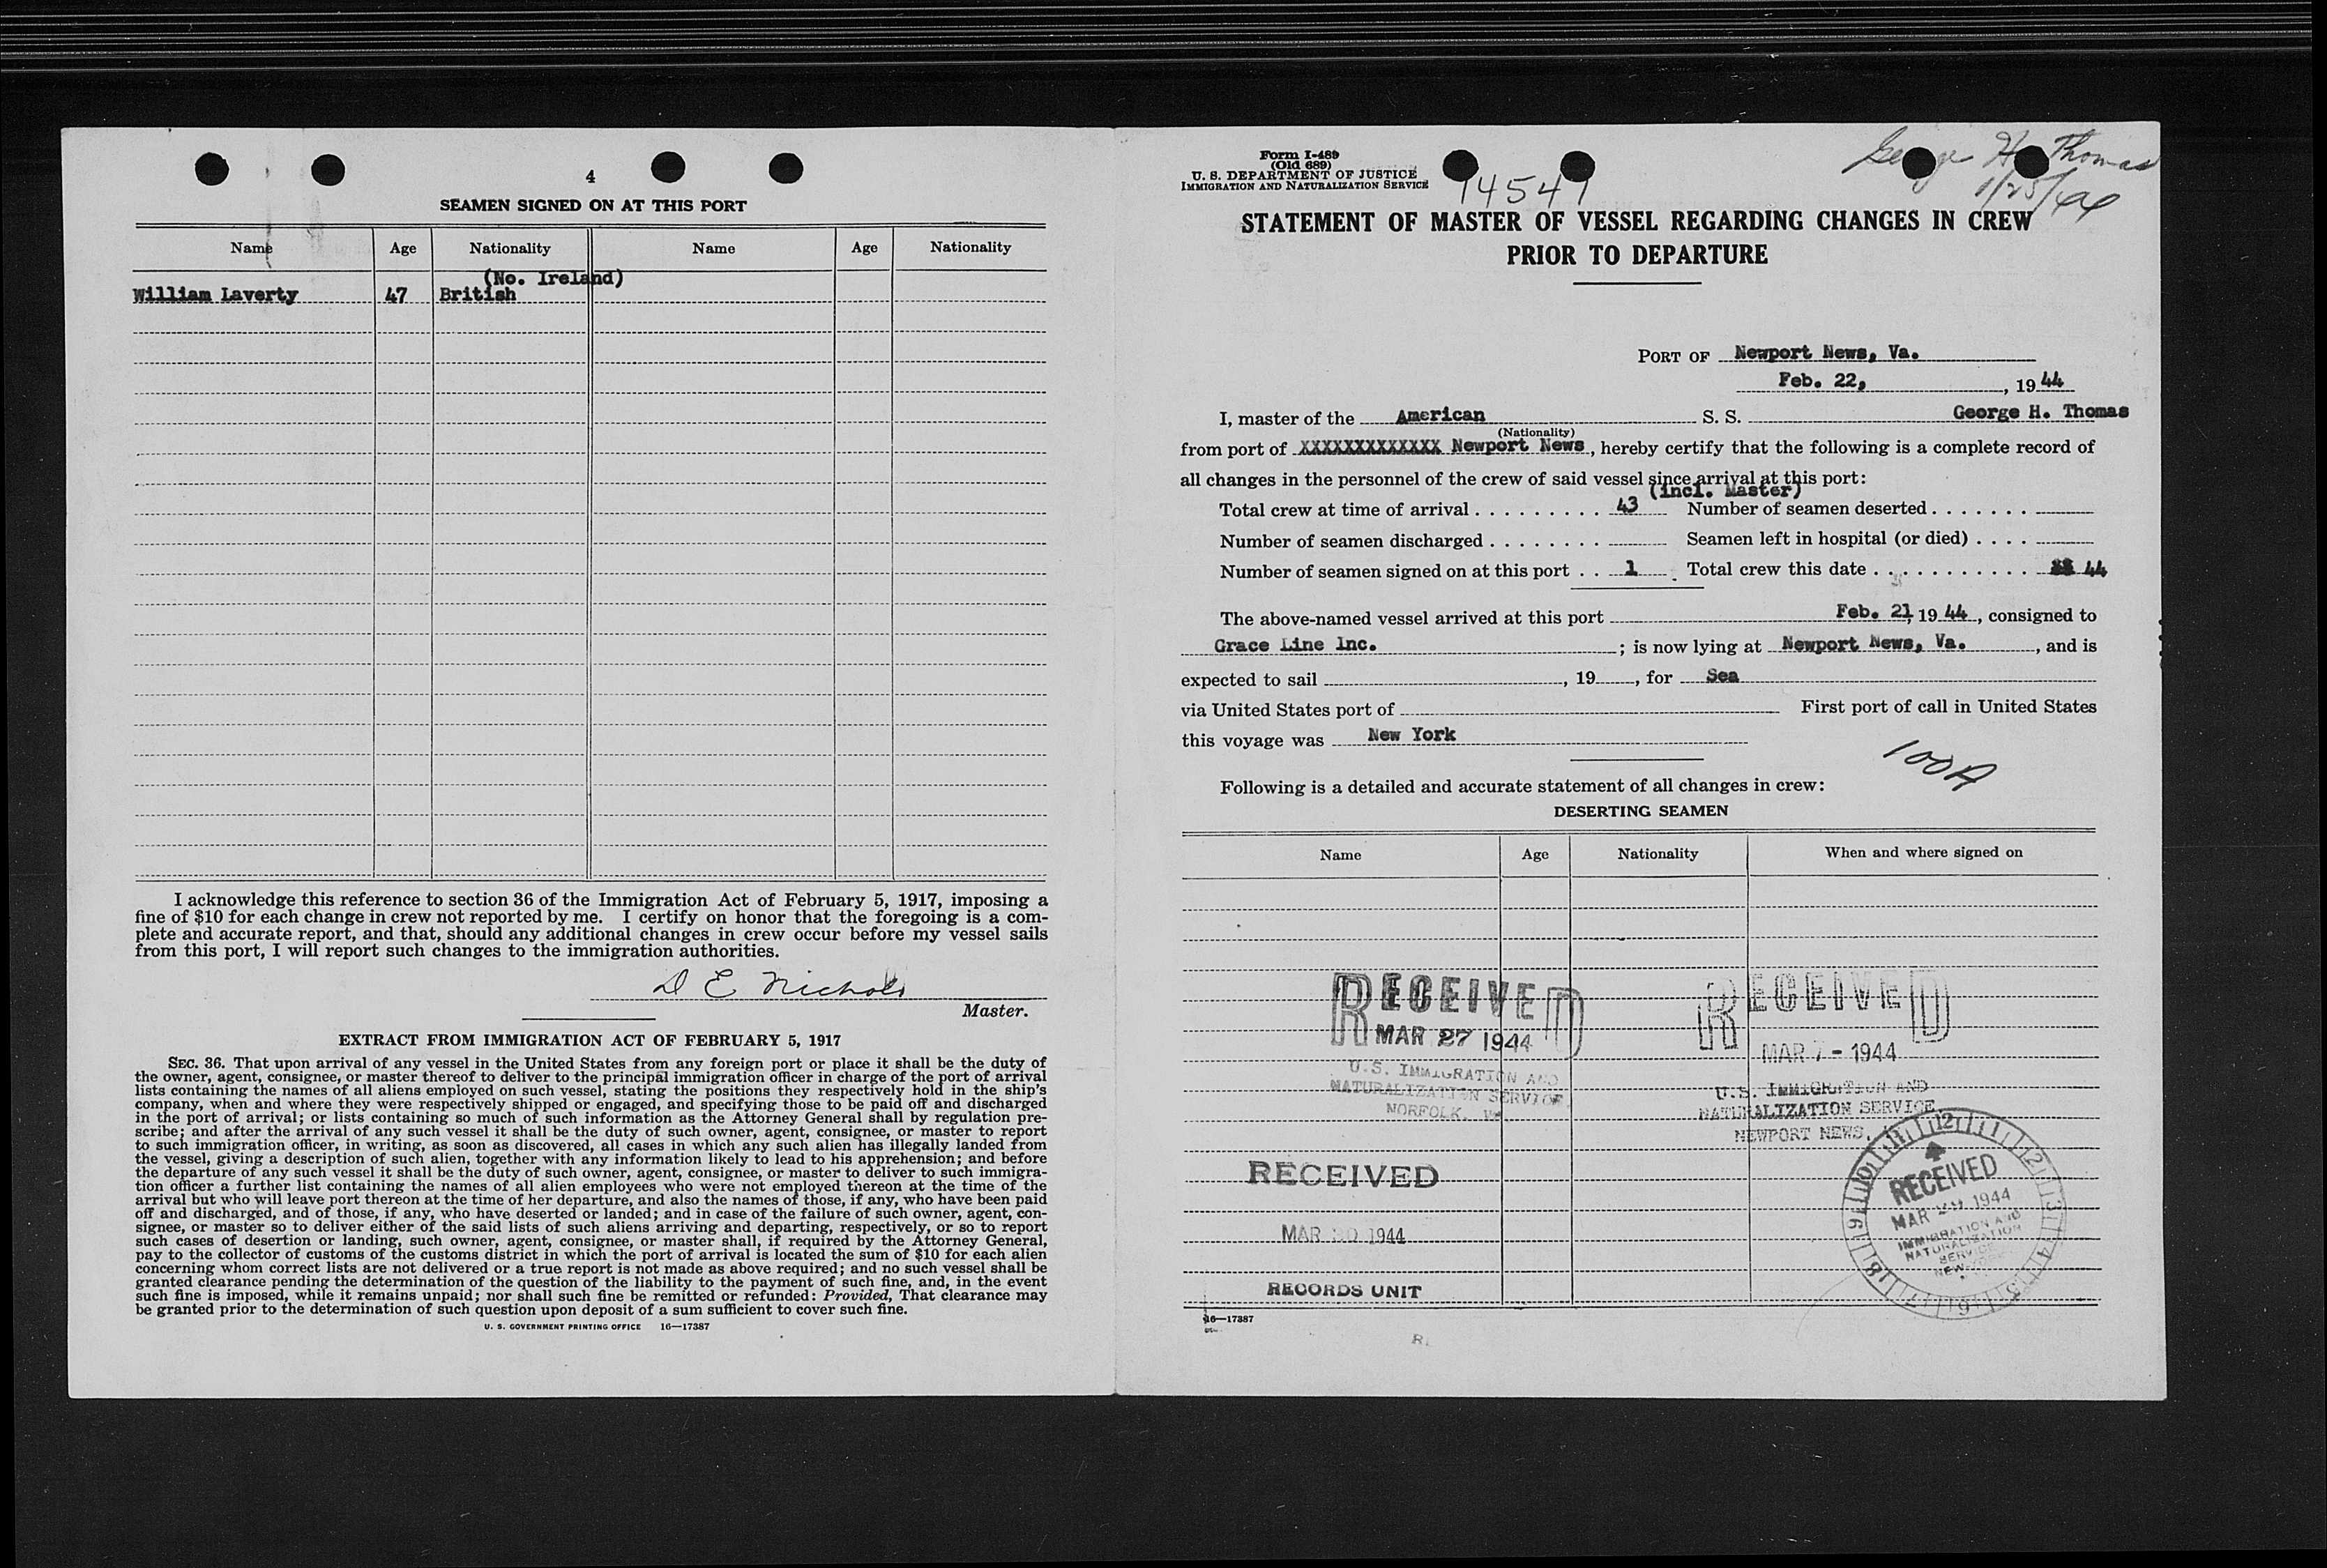 4
SEAMEN SIGNED ON AT THIS PORT
Name Age Nationality Name Age Nationality
(No. Ireland)
William Laverty 47 British
I acknowledge this reference to section 36 of the Immigration Act of February 5, 1917, imposing a
fine of $10 for each change in crew not reported by me. I certify on honor that the foregoing is a com-
plete and accurate report, and that, should any additional changes in crew occur before my vessel sails
from this port, I will report such changes to the immigration authorities.
D E Nichols
Master.
EXTRACT FROM IMMIGRATION ACT OF FEBRUARY 5, 1917
SEC. 36. That upon arrival of any vessel in the United States from any foreign port or place it shall be the duty of
the owner, agent, consignee, or master thereof to deliver to the principal immigration officer in charge of the port of arrival
lists containing the names of all aliens employed on such vessel, stating the positions they respectively hold in the ship's
company, when and where they were respectively shipped or engaged, and specifying those to be paid off and discharged
in the port of arrival; or lists containing so much of such information as the Attorney General shall by regulation pre-
scribe; and after the arrival of any such vessel it shall be the duty of such owner, agent, consignee, or master to report
to such immigration officer, in writing, as soon as discovered, all cases in which any such alien has illegally landed from
the vessel, giving a description of such alien, together with any information likely to lead to his apprehension; and before
the departure of any such vessel it shall be the duty of such owner, agent, consignee, or master to deliver to such immigra-
tion officer a further list containing the names of all alien employees who were not employed thereon at the time of the
arrival but who will leave port thereon at the time of her departure, and also the names of those, if any, who have been paid
off and discharged, and of those, if any, who have deserted or landed; and in case of the failure of such owner, agent, con-
signee, or master so to deliver either of the said lists of such aliens arriving and departing, respectively, or so to report
such cases of desertion or landing, such owner, agent, consignee, or master shall, if required by the Attorney General,
pay to the collector of customs of the customs district in which the port of arrival is located the sum of $10 for each alien
concerning whom correct lists are not delivered or a true report is not made as above required; and no such vessel shall be
granted clearance pending the determination of the question of the liability to the payment of such fine, and, in the event
such fine is imposed, while it remains unpaid; nor shall such fine be remitted or refunded: Provided, That clearance may
be granted prior to the determination of such question upon deposit of a sum sufficient to cover such fine.
U. S. GOVERNMENT PRINTING OFFICE 16—17387
Form I-489
(Old 689)
U. S. DEPARTMENT OF JUSTICE
IMMIGRATION AND NATURALIZATION SERVICE
George H. Thomas
1/25/44
STATEMENT OF MASTER OF VESSEL REGARDING CHANGES IN CREW
PRIOR TO DEPARTURE
PORT OF Newport News, Va.
Feb. 22, , 19 44
I, master of the American S. S. George H. Thomas
(Nationality)
from port of XXXXXXXXXXXXX Newport News, hereby certify that the following is a complete record of
all changes in the personnel of the crew of said vessel since arrival at this port:
(incl. Master)
Total crew at time of arrival . . . . . . . . . 43 Number of seamen deserted . . . . . . .
Number of seamen discharged . . . . . . . . Seamen left in hospital (or died) . . . .
Number of seamen signed on at this port . . 1 Total crew this date . . . . . . . . . . . 44
The above-named vessel arrived at this port Feb. 21, 19 44, consigned to
Grace Line Inc. ; is now lying at Newport News, Va. , and is
expected to sail , 19 , for Sea
via United States port of First port of call in United States
this voyage was New York
100A
Following is a detailed and accurate statement of all changes in crew:
DESERTING SEAMEN
Name Age Nationality When and where signed on
RECEIVED
MAR 27 1944
U.S. IMMIGRATION AND
NATURALIZATION SERVICE
NORFOLK, VA
RECEIVED
MAR 7 - 1944
U.S. IMMIGRATION AND
NATURALIZATION SERVICE
NEWPORT NEWS,
RECEIVED
MAR 30 1944
RECORDS UNIT
12 1 2 3 4 5 6 7 8 9 10 11
RECEIVED
MAR 1944
IMMIGRATION AND
NATURALIZATION
SERVICE
NEW
16—17387
R.